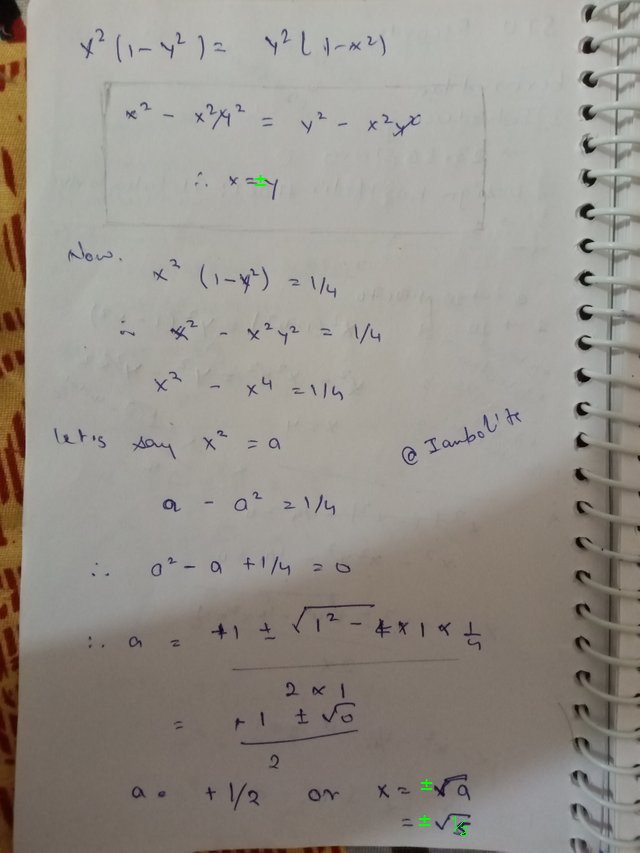 x² (1 - y²) = y² (1 - x²)
x² - x²y² = y² - x²y²
∴ x = ± y
Now.
x² (1 - y²) = 1/4
∴ x² - x²y² = 1/4
x² - x⁴ = 1/4
let's say x² = a
@Iambolite
a - a² = 1/4
∴ a² - a + 1/4 = 0
∴ a = +1 ± √1² - 4 × 1 × 1/4
2 × 1
= +1 ± √0
2
a = +1/2 or x = ±√a
= ±√